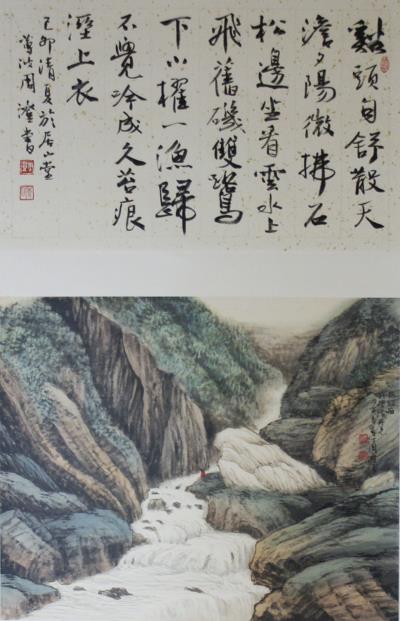 谿頭自舒散天
澹夕陽微拂石
松邊坐看雲水上
飛舊磯雙鷺
下小櫂一漁歸
不覺吟成久苔痕
溼上衣
己卯清夏於居山堂
周澄書